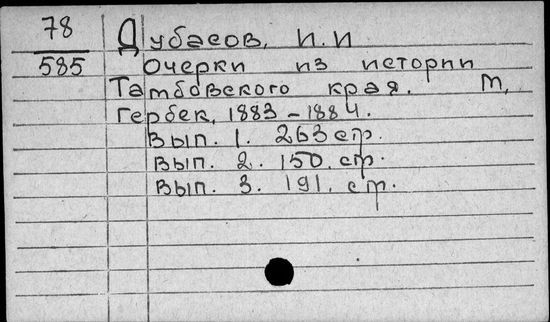 78 Дубасов, И.И
585 Очерки из истории
Тамбовского края. М,
Гербек, 1883-1884.
Вып. 1. 263 стр.
Вып. 2. 150. стр.
Вып. 3. 191. стр.